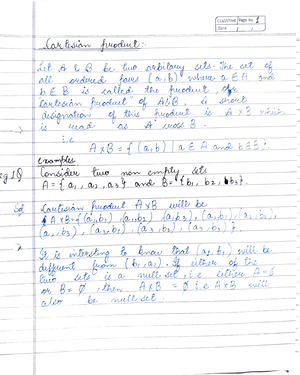 CLASSTIME Page No. 1
Date / /
Cartesian product:-
Let A & B be two arbitary sets. The set of
all ordered pairs (a,b) where a ∈ A and
b ∈ B is called the product, or
Cartesian product of A & B. A short
designation of this product is A x B which
is read as A cross B.
i.e
A x B = { (a,b) | a ∈ A and b ∈ B }.
examples
eg 1Q Consider two non empty sets
A = { a1, a2, a3 } and B = { b1, b2, b3 }.
Sol Cartesian product A x B will be
A x B = { (a1,b1), (a1,b2), (a1,b3),
It is interesting to know that (a1,b1) will be
different from (b1,a1). If either of the
two sets is a null set, i.e either A = ϕ
or B = ϕ, then A x B = ϕ i.e A x B will
also be null set.